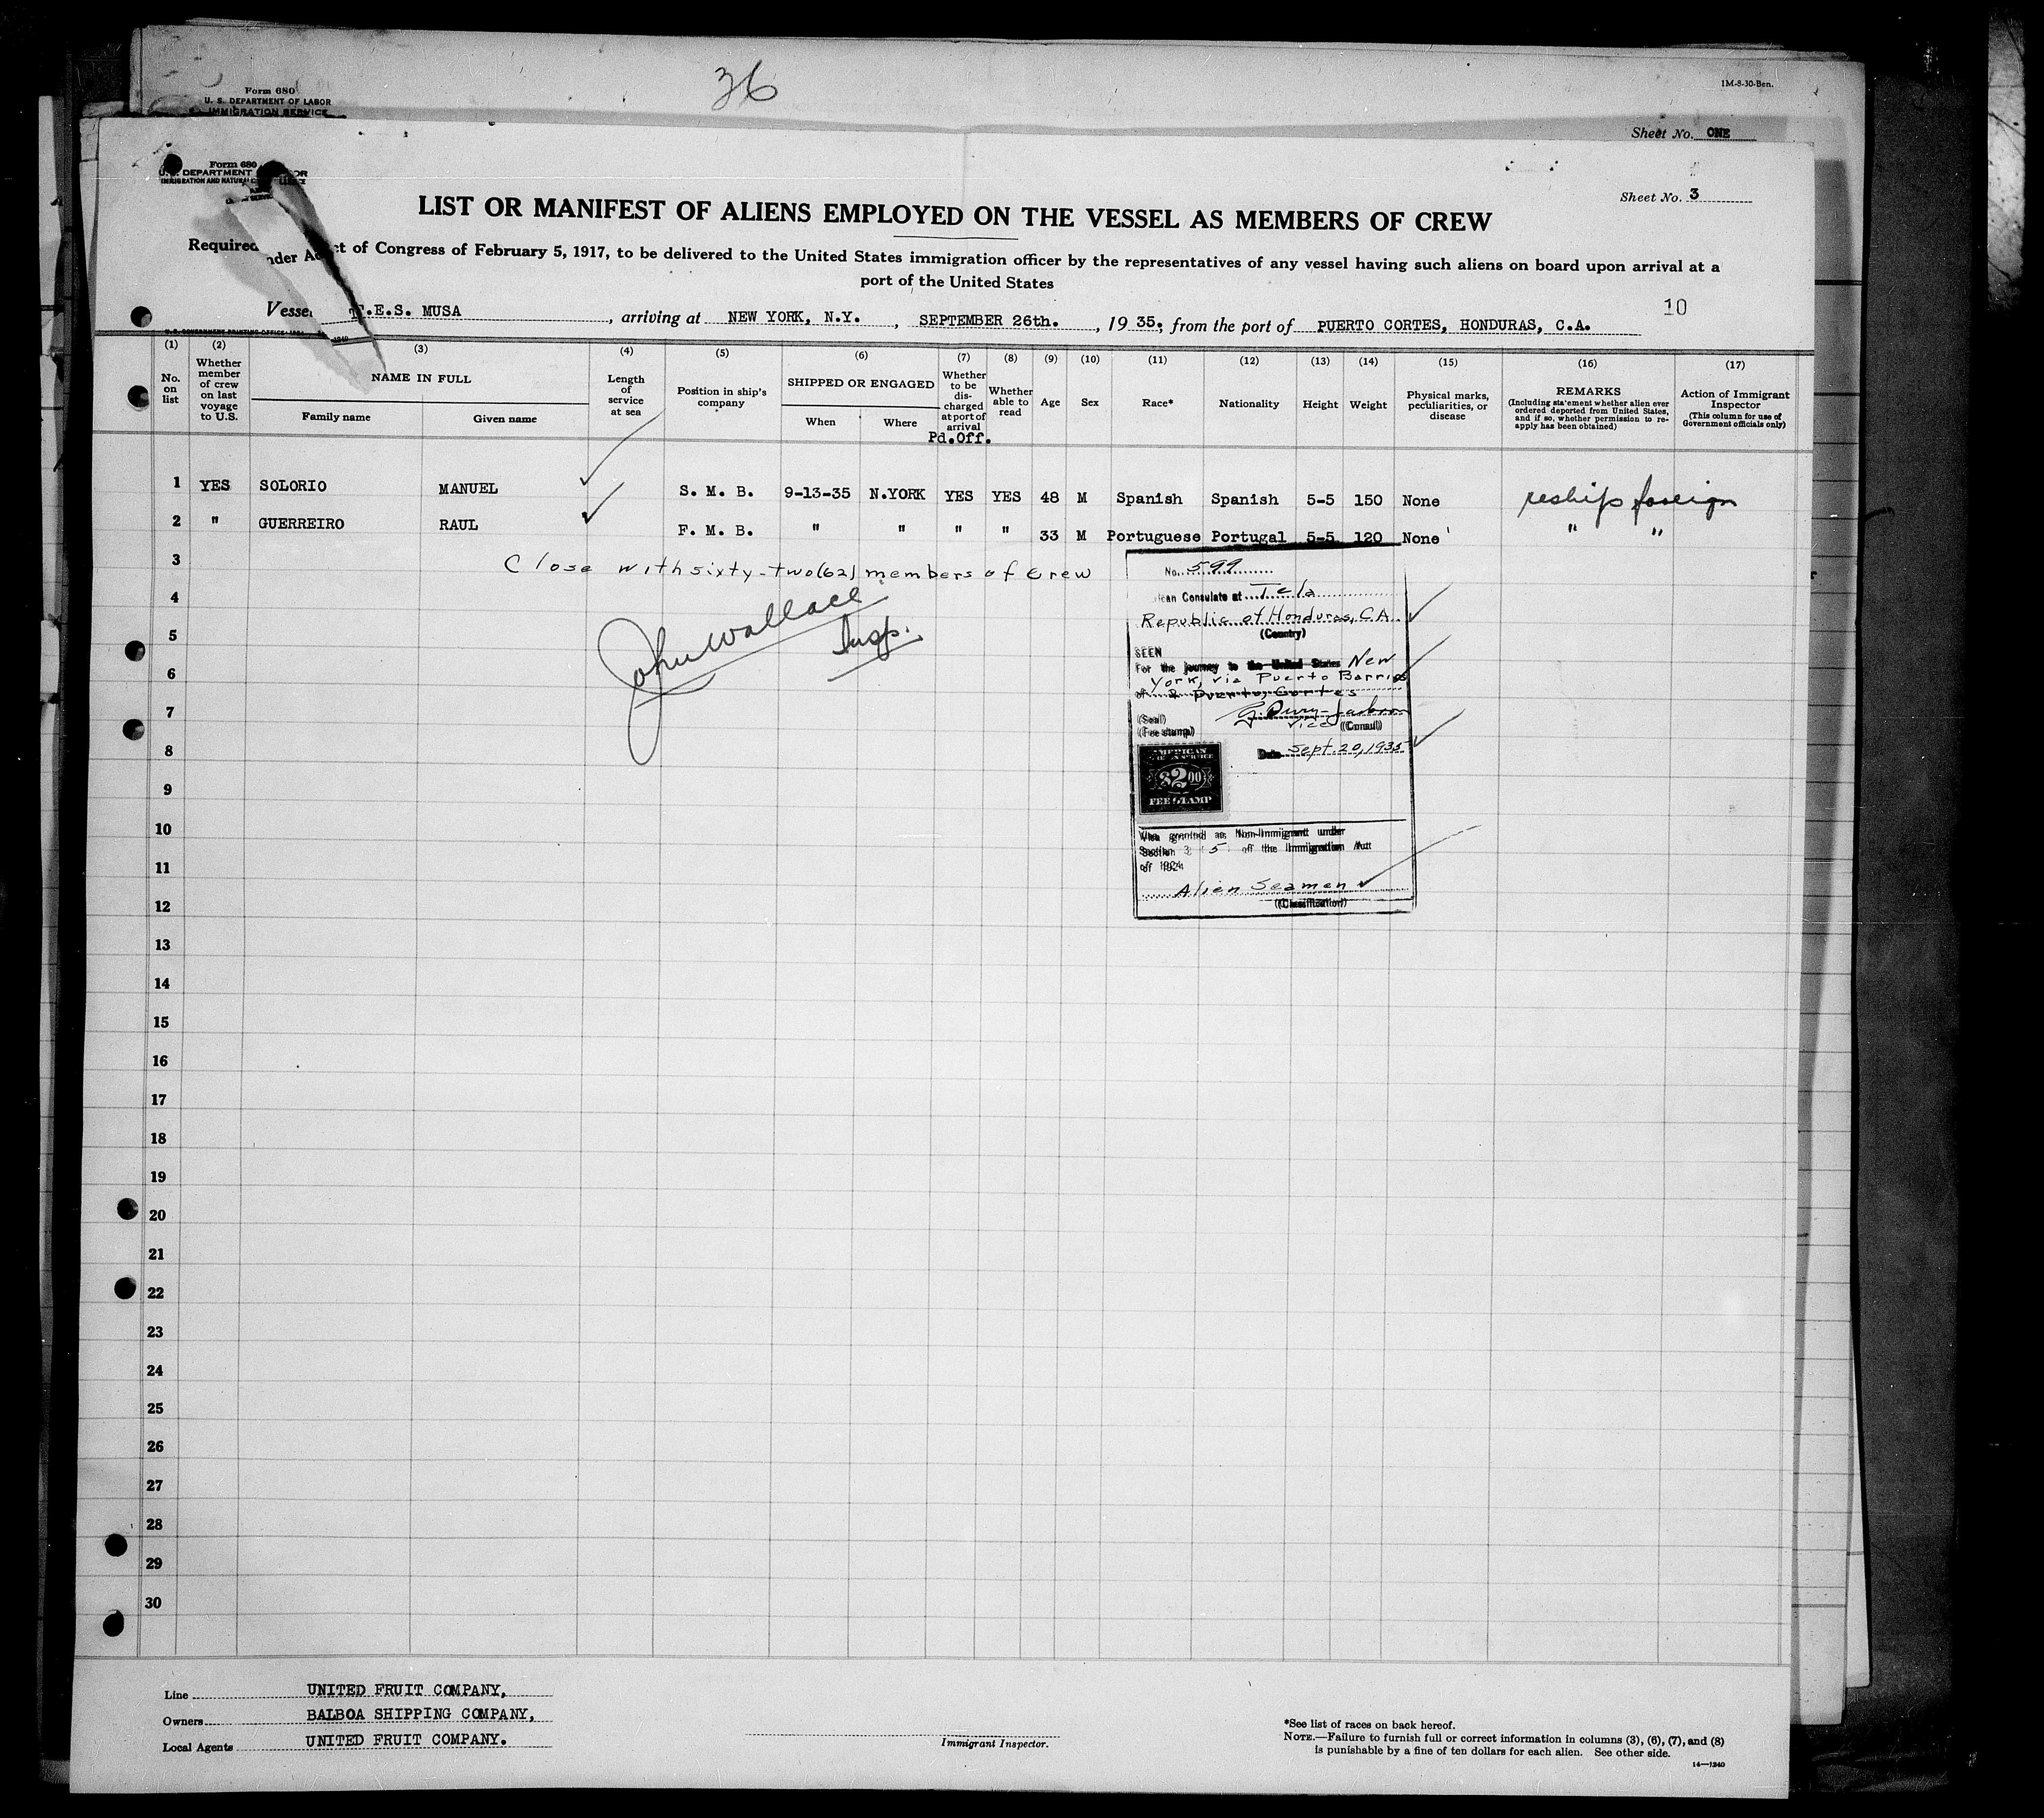 36
Form 680
U. S. DEPARTMENT OF LABOR
IMMIGRATION SERVICE
1M-8-30-Ben.
Sheet No. ONE
Form 680
U. S. DEPARTMENT OR
IMMIGRATION AND NATURAL
Sheet No. 3
LIST OR MANIFEST OF ALIENS EMPLOYED ON THE VESSEL AS MEMBERS OF CREW
Required under Act of Congress of February 5, 1917, to be delivered to the United States immigration officer by the representatives of any vessel having such aliens on board upon arrival at a
port of the United States
10
Vessel T.E.S. MUSA, arriving at NEW YORK, N.Y., SEPTEMBER 26th., 1935, from the port of PUERTO CORTES, HONDURAS, C.A.
(1) (2) (3) (4) (5) (6) (7) (8) (9) (10) (11) (12) (13) (14) (15) (16) (17)
No. on list
Whether member of crew on last voyage to U.S.
NAME IN FULL
Family name
Given name
Length of service at sea
Position in ship's company
SHIPPED OR ENGAGED
When
Where
Whether to be discharged at port of arrival
Pd.Off.
Whether able to read
Age
Sex
Race*
Nationality
Height
Weight
Physical marks, peculiarities, or disease
REMARKS
(Including statement whether alien ever ordered deported from United States, and if so, whether permission to reapply has been obtained)
Action of Immigrant Inspector
(This column for use of Government officials only)
1 YES SOLORIO MANUEL S. M. B. 9-13-35 N.YORK YES YES 48 M Spanish Spanish 5-5 150 None reships foreign
2 " GUERREIRO RAUL F. M. B. " " " " 33 M Portuguese Portugal 5-5 120 None " "
3 Close with sixty-two (62) members of Crew
4
5
6
7
8
9
10
11
12
13
14
15
16
17
18
19
20
21
22
23
24
25
26
27
28
29
30
John Wallace
Insp.
No. 599
ican Consulate at Tela
Republic of Honduras, C.A.
(Country)
SEEN
For the journey to the United States New
York, via Puerto Barrios
& Puerto Cortes
(Seal)
Vice (Consul)
(Fee stamp)
Date Sept. 20, 1935
AMERICAN
$2.00
FEE STAMP
Visa granted as Non-Immigrant under
Section 3 (5 of the Immigration Act
of 1924
Alien Seamen
(Classification)
Line UNITED FRUIT COMPANY,
Owners BALBOA SHIPPING COMPANY,
Local Agents UNITED FRUIT COMPANY.
Immigrant Inspector.
*See list of races on back hereof.
NOTE.—Failure to furnish full or correct information in columns (3), (6), (7), and (8)
is punishable by a fine of ten dollars for each alien. See other side.
14—1240